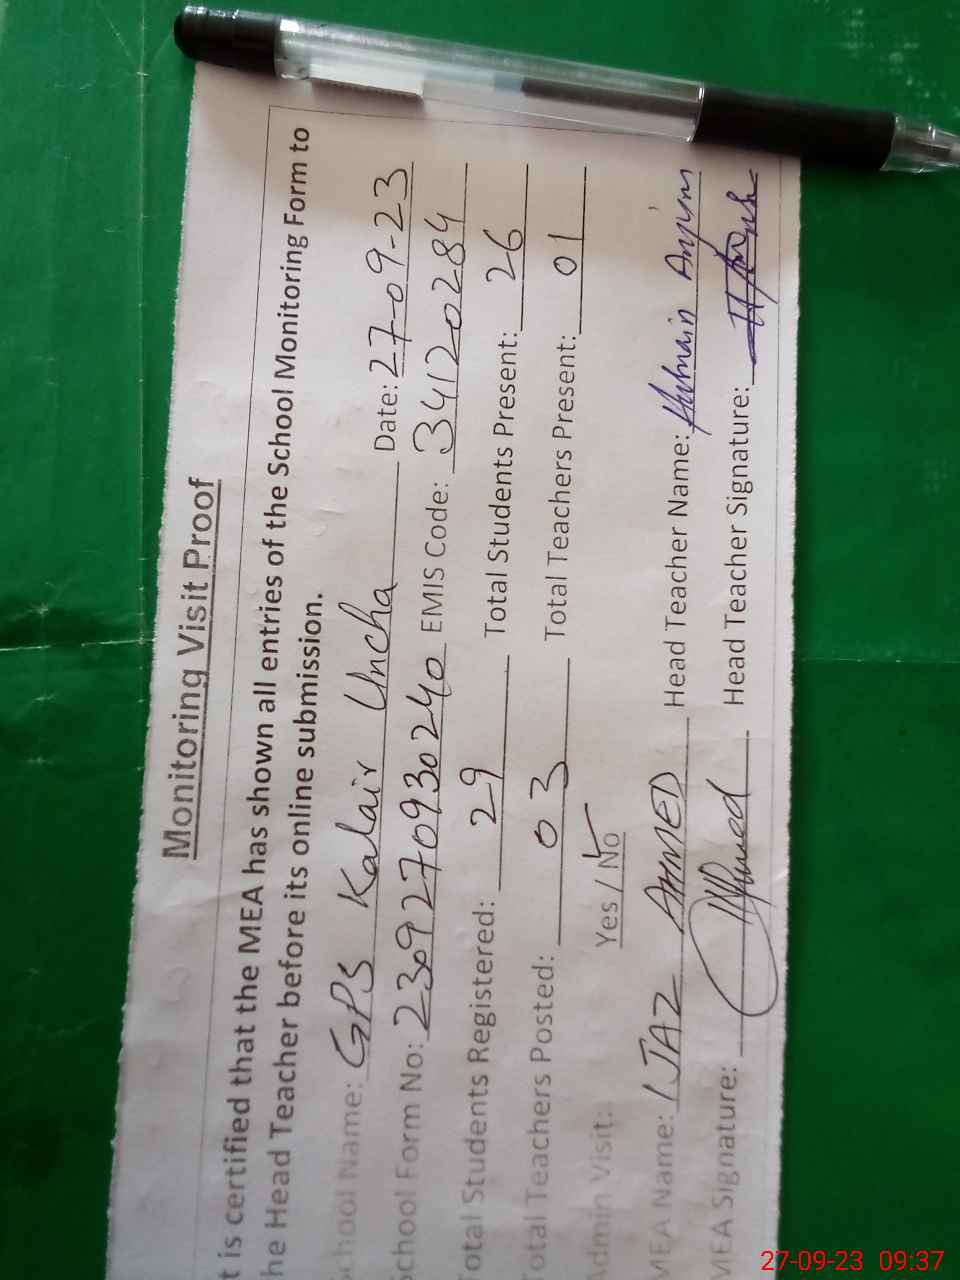 Monitoring Visit Proof
t is certified that the MEA has shown all entries of the School Monitoring Form to
he Head Teacher before its online submission.
chool Name: GPS Kalair Uncha Date: 27-09-23
School Form No: 2309270930240 EMIS Code: 34120284
Total Students Registered: 29 Total Students Present: 26
Total Teachers Posted: 03 Total Teachers Present: 01
Admin Visit: Yes / No
MEA Name: IJAZ AHMED Head Teacher Name: Anjum
MEA Signature: Head Teacher Signature:
27-09-23 09:37